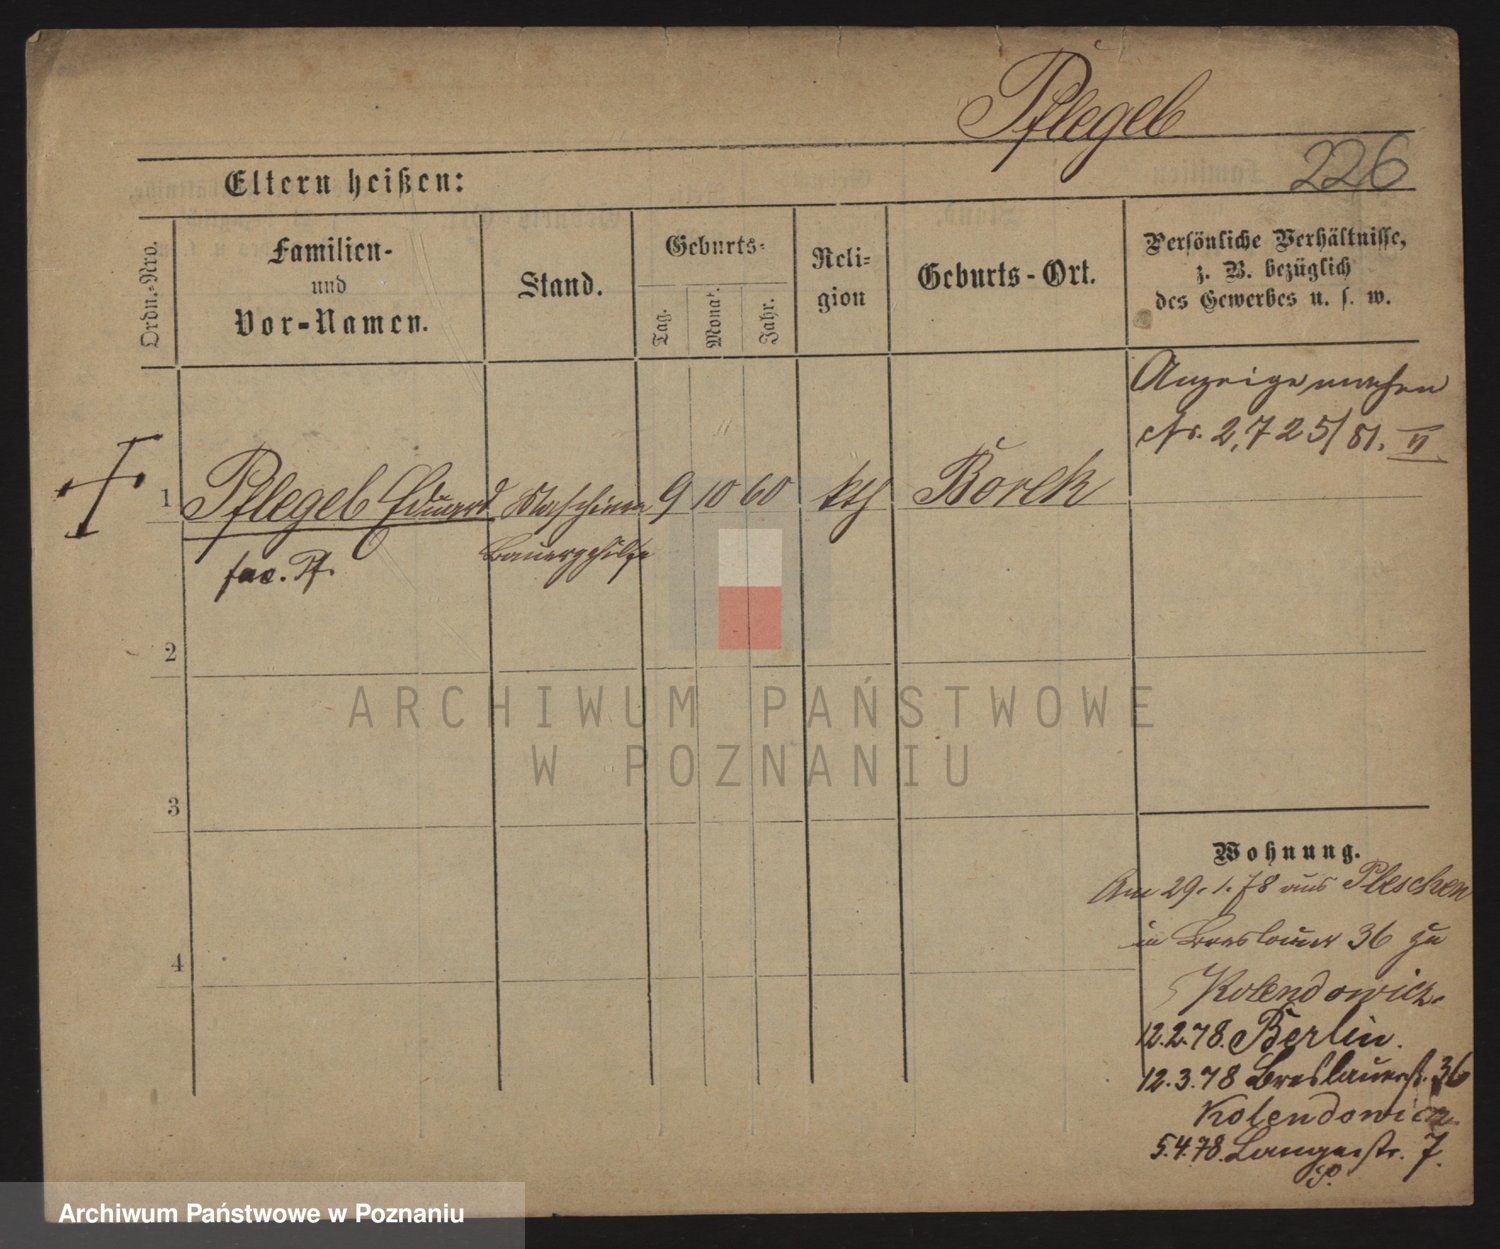 Pflegel
226
Eltern heißen:
Ordn.-Nro.
Familien-
und
Vor-Namen.
Stand.
Geburts-
Tag.
Monat.
Jahr.
Reli-
gion
Geburts-Ort.
Persönliche Verhältnisse,
z. B. bezüglich
des Gewerbes u. s. w.
Anzeige machen
Nr. 2,725/81. II
1 Pflegel Eduard Maschinen 9 10 60 kth Borek
Bauergehilfe
2
3
4
Wohnung.
Am 29.1.78 aus Pleschen
in Breslauer 36 zu
Kolendowicz.
12.2.78. Berlin.
12.3.78 Breslauerstr. 36
Kolendowicz.
5.4.78. Langestr. 7.
ARCHIWUM PAŃSTWOWE
W POZNANIU
Archiwum Państwowe w Poznaniu